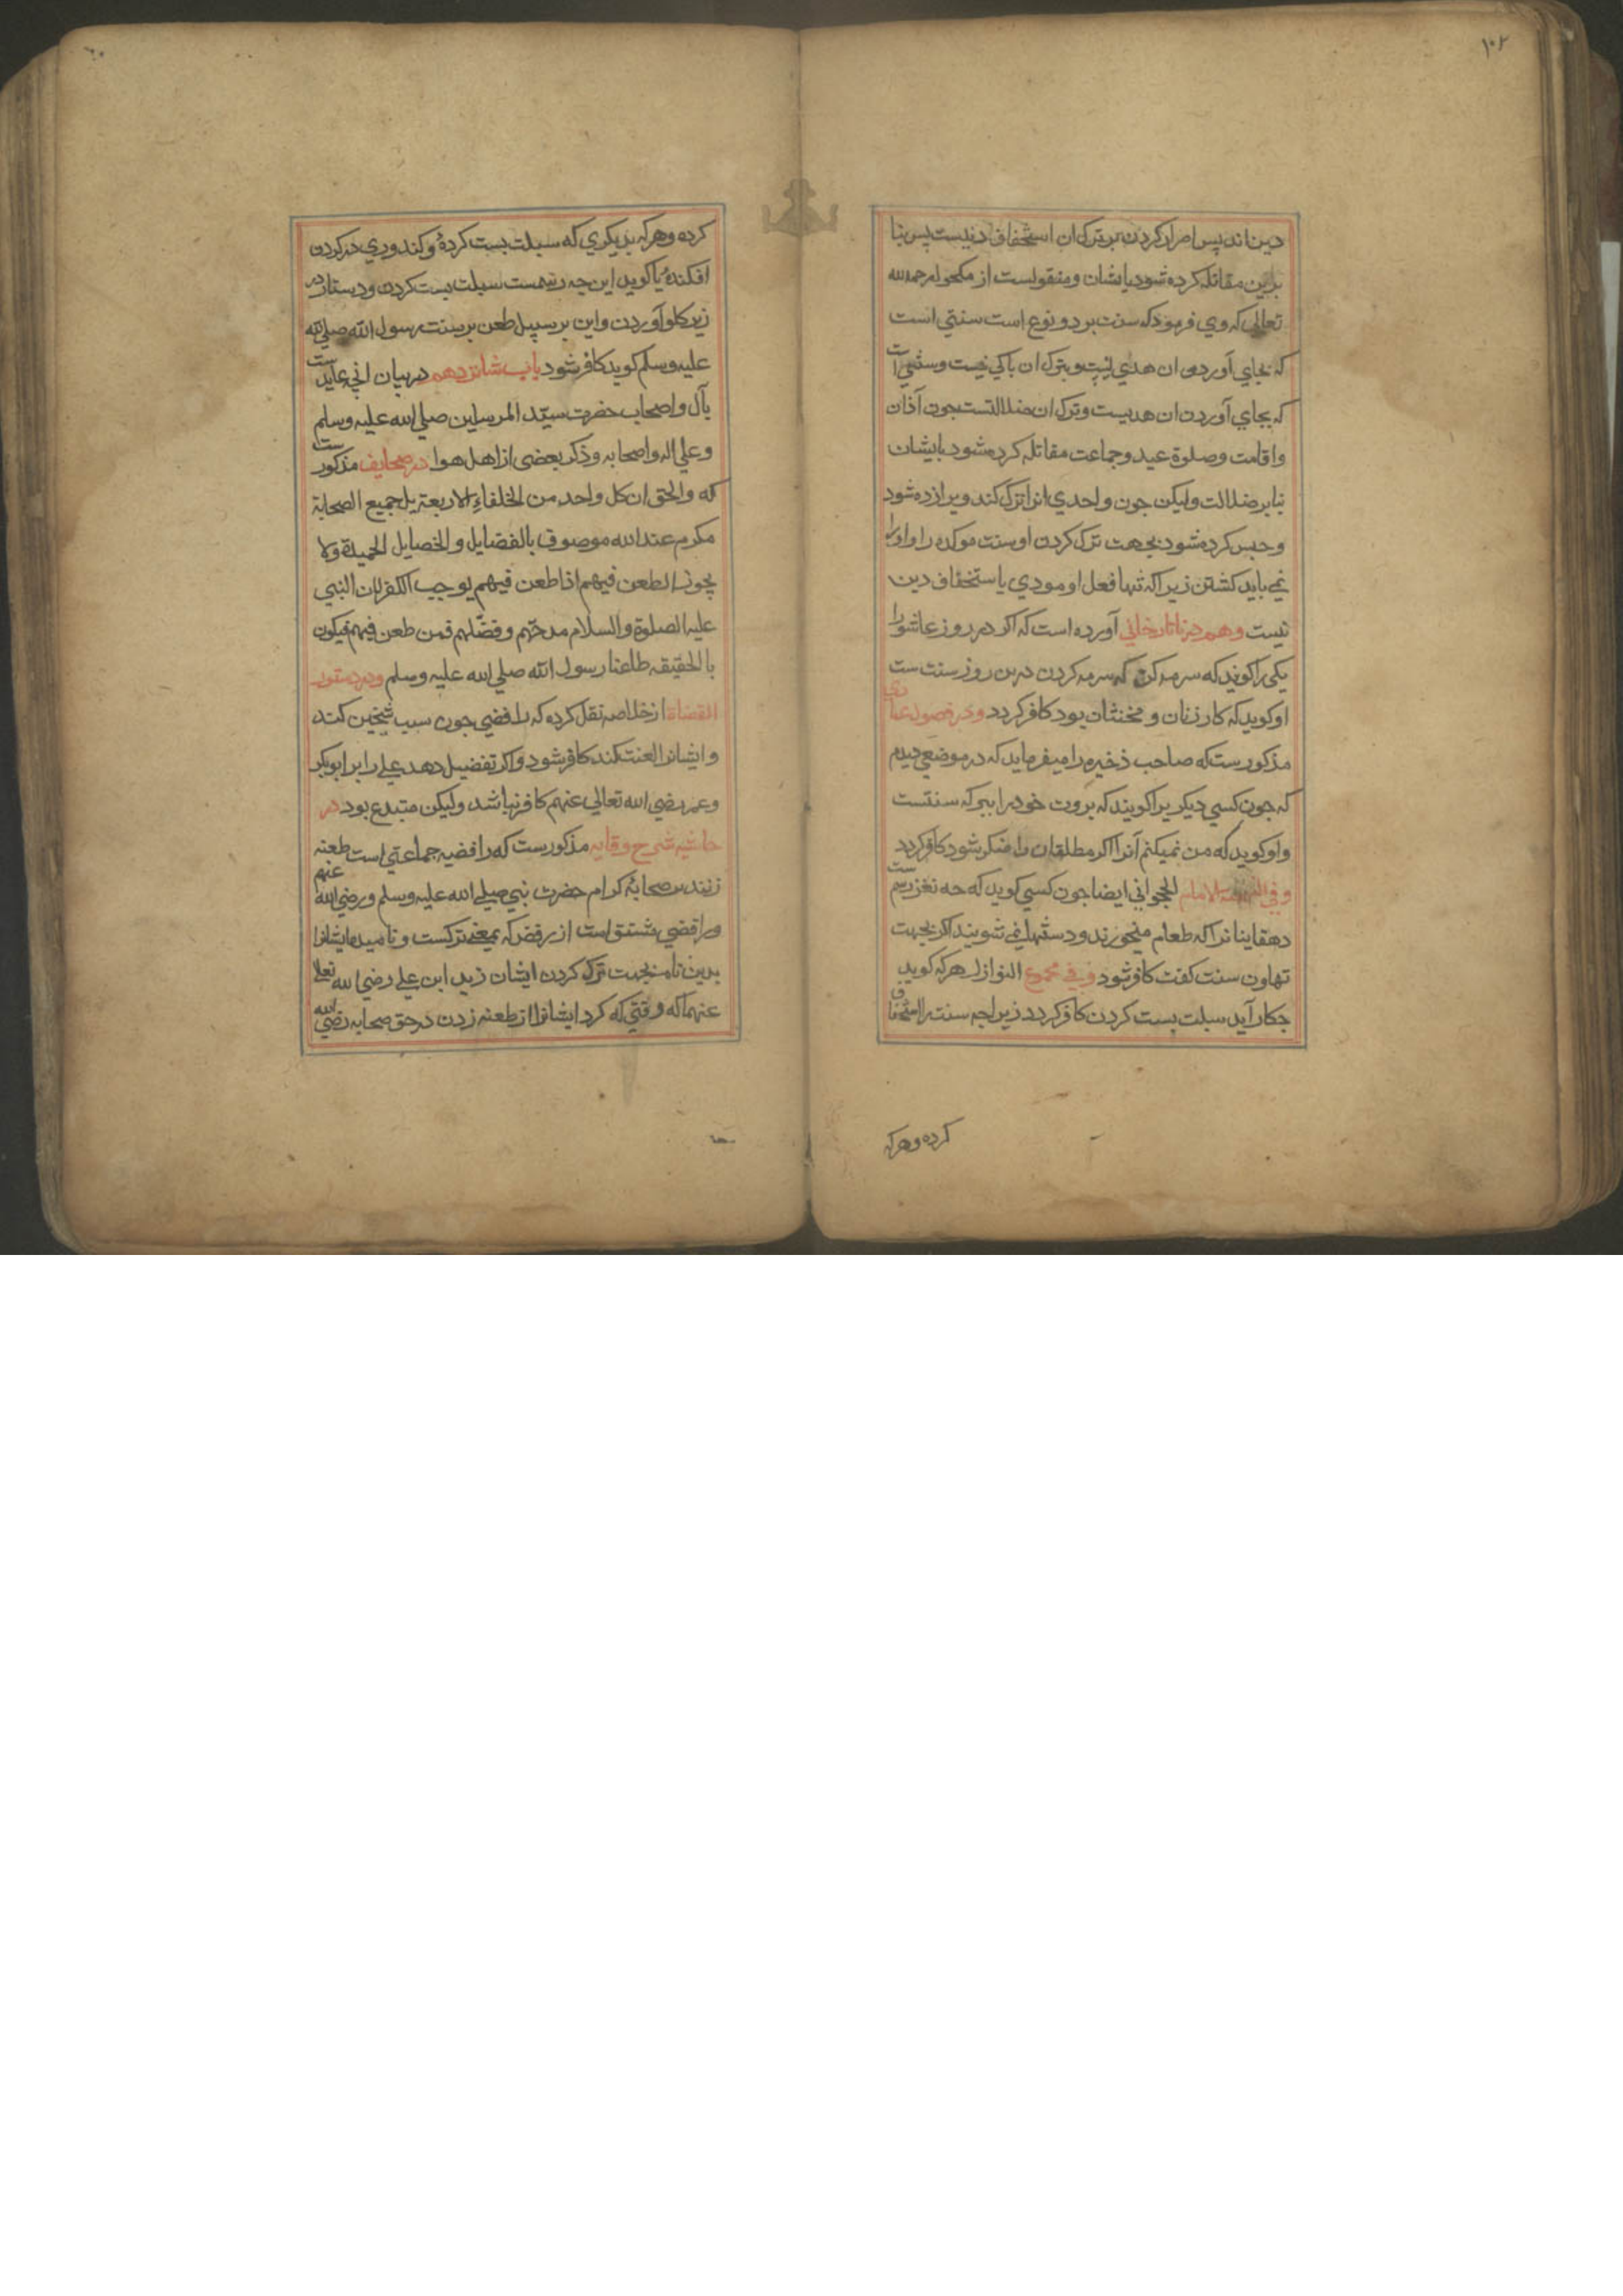 ۱۰۲
دین اند پس اصرار کردن بر ترک ان استخفاف دینست پس بنا
برین مقاتله کرده شود بایشان و منقولست از مکحول رحمه الله
تعالی که وی فرمود که سنت بر دو نوع است سنتی است
که بجای آوردن ان هدی است و بترک ان باکی نیست و سنتی است
که بجای آوردن ان هدیست و ترک ان ضلالتست جون آذان
و اقامت و صلوة عید و جماعت مقاتله کرده شود بایشان
بنابر ضلالت ولیکن جون واحدی انرا ترک کند ویرا زده شود
و حبس کرده شود بجهت ترک کردن او سنت موکده را و اورا
نمی باید کشتن زیراکه تنها فعل او مودی باستخفاف دین
نیست وهم در تاتارخانی آورده است که اکر در روز عاشورا
یکی را کویند که سرمه کن که سرمه کردن درین روز سنت ست
او کوید که کار زنان و مخنثان بود کافر کردد و در فصول عمادی
مذکورست که صاحب ذخیره را میفرماید که در موضعی دیدم
که جون کسی دیکریرا کویند که بروت خود را ببر که سنتست
و او کوید که من نمیکنم آنرا اکر مطلقان را منکر شود کافر کردد
وفی للامام الخجوانی ایضا جون کسی کوید که چه نغز رسم ست
دهقاینانرا که طعام میخورند و دستها نمی شویند اکر بجهت
تهاون سنت کفت کافر شود و فی مجموع النوازل هر که کوید
جکار آید سبلت پست کردن کافر کردد زیرا جه سنت را استخفاف
کرده و هر که
کرده و هر که بدیکری که سبلت پست کردهٔ و کندوری در کردن
افکندهٔ یا کوید این جه رسمست سبلت پست کردن و دستار در
زیر کلو آوردن و این بر سبیل طعن بر سنت رسول الله صلی الله
علیه وسلم کوید کافر شود باب شانزدهم در بیان انچه عایدست
بآل و اصحاب حضرت سید المرسلین صلی الله علیه وسلم
وعلی اله واصحابه و ذکر بعضی از اهل هوا در صحایف مذکورست
که والحق ان کل واحد من الخلفاء الاربعة بل جمیع الصحابة
مکرم عند الله موصوف بالفضایل والخصایل الحمیدة ولا
یجوز الطعن فیهم اذا طعن فیهم یوجب الکفر لان النبی
علیه الصلوة والسلام مدحهم وفضلهم فمن طعن فیهم فیکون
بالحقیقه طاعنا رسول الله صلی الله علیه وسلم و در دستور
القضاة از خلاصه نقل کرده که رافضی جون سب شیخین کند
و ایشانرا لعنت کند کافر شود و اکر تفضیل دهد علی را بر ابوبکر
وعمر رضی الله تعالی عنهم کافر نباشد ولیکن مبتدع بود در
حاشیه شرح وقایه مذکورست که رافضیه جماعتی است طعنه
زنند بر صحابهٔ کرام حضرت نبی صلی الله علیه وسلم ورضی الله عنهم
و رافضی مشتق است از رفض که بمعنی ترکست و نامیده ایشانرا
بدین نام بجهت ترک کردن ایشان زید ابن علی رضی الله تعالی
عنهما که وقتی که کرد ایشانرا از طعنه زدن در حق صحابه رضی الله